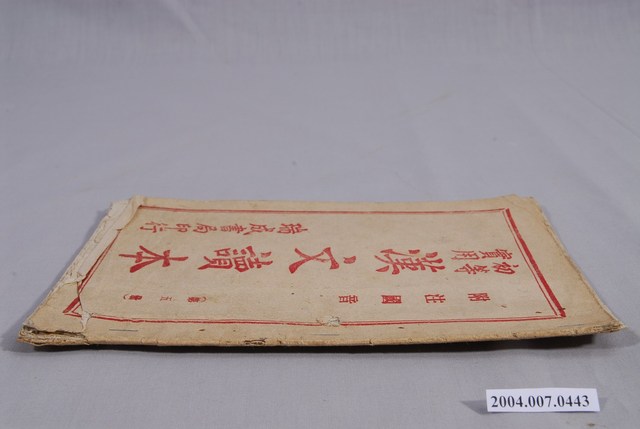 附註國音
(第五冊)
初等
實用
漢文讀本
瑞成書局印行
2004.007.0443